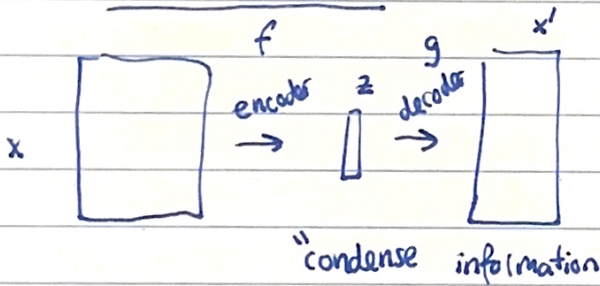 f g x'
encoder z decoder
x
"condense information